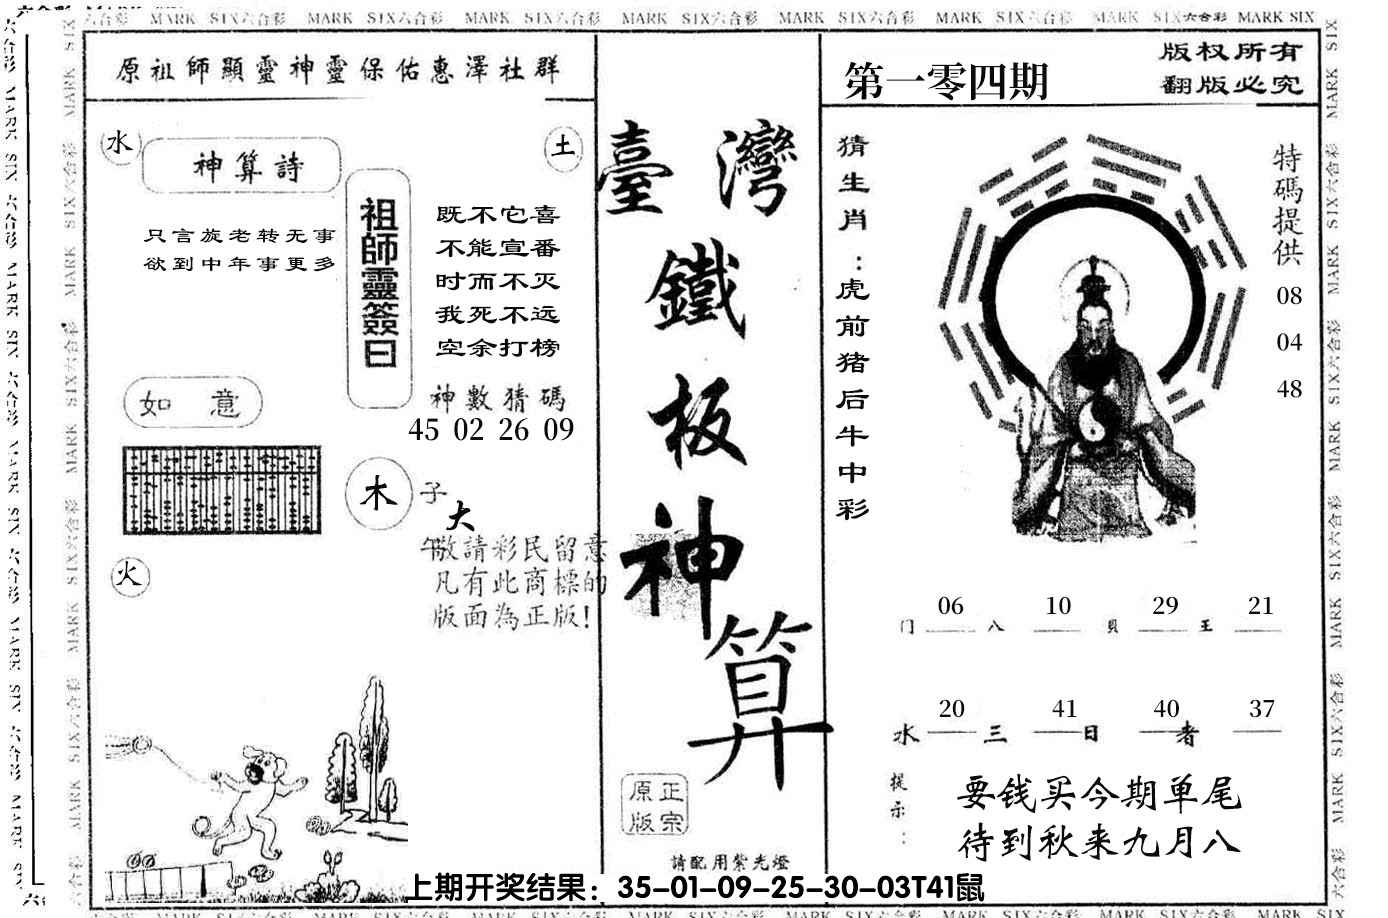 MARK SIX六合彩 MARK SIX六合彩 MARK SIX六合彩 MARK SIX六合彩 MARK SIX六合彩 MARK SIX六合彩 MARK SIX六合彩 MARK SIX
原祖師顯靈神靈保佑惠澤社群
水
神算詩
土
只言旋老转无事
欲到中年事更多
祖師靈簽曰
既不它喜
不能宣番
时而不灭
我死不远
空余打榜
神數猜碼
45 02 26 09
如 意
木
子
大
午
敬請彩民留意
凡有此商標的
版面為正版!
火
臺灣
鐵
板
神
算
正宗
原版
請配用紫光燈
第一零四期
版权所有
翻版必究
猜生肖:虎前猪后牛中彩
特碼提供
08
04
48
06 10 29 21
门 八 貝 王
20 41 40 37
水 三 日 者
提示:
要钱买今期单尾
待到秋来九月八
上期开奖结果：35-01-09-25-30-03T41鼠